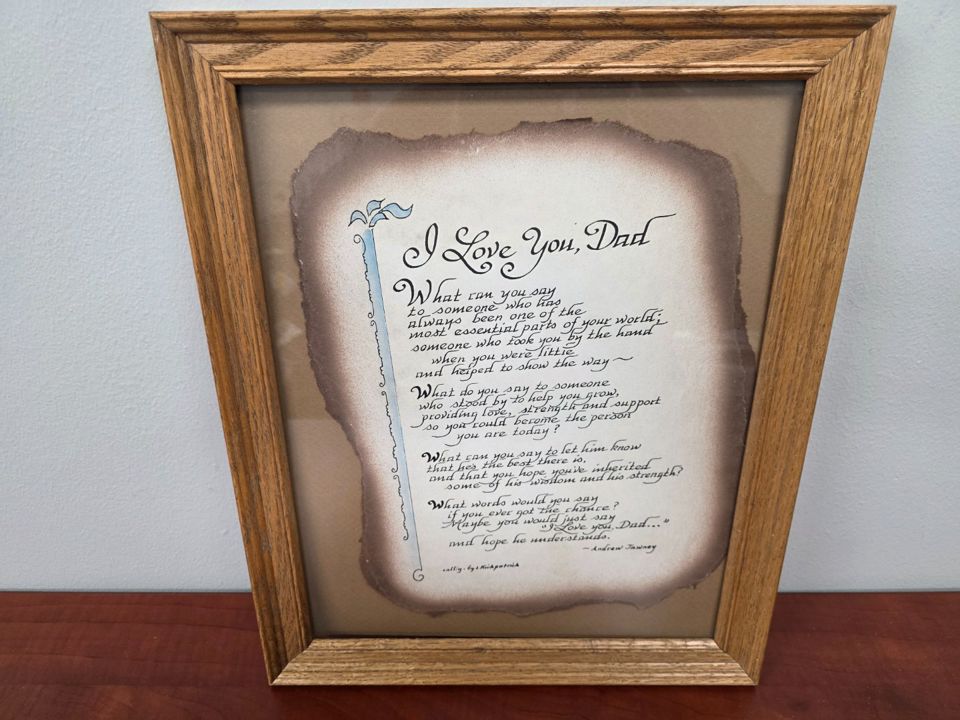 I Love You, Dad
What can you say
to someone who has
always been one of the
most essential parts of your world;
someone who took you by the hand
when you were little
and helped to show the way~
What do you say to someone
who stood by to help you grow,
providing love, strength and support
so you could become the person
you are today?
What can you say to let him know
that he's the best there is,
and that you hope you've inherited
some of his wisdom and his strength?
What words would you say
if you ever got the chance?
Maybe you would just say
"I Love you, Dad..."
and hope he understands.
~Andrew Tawney
callig. by: Kirkpatrick